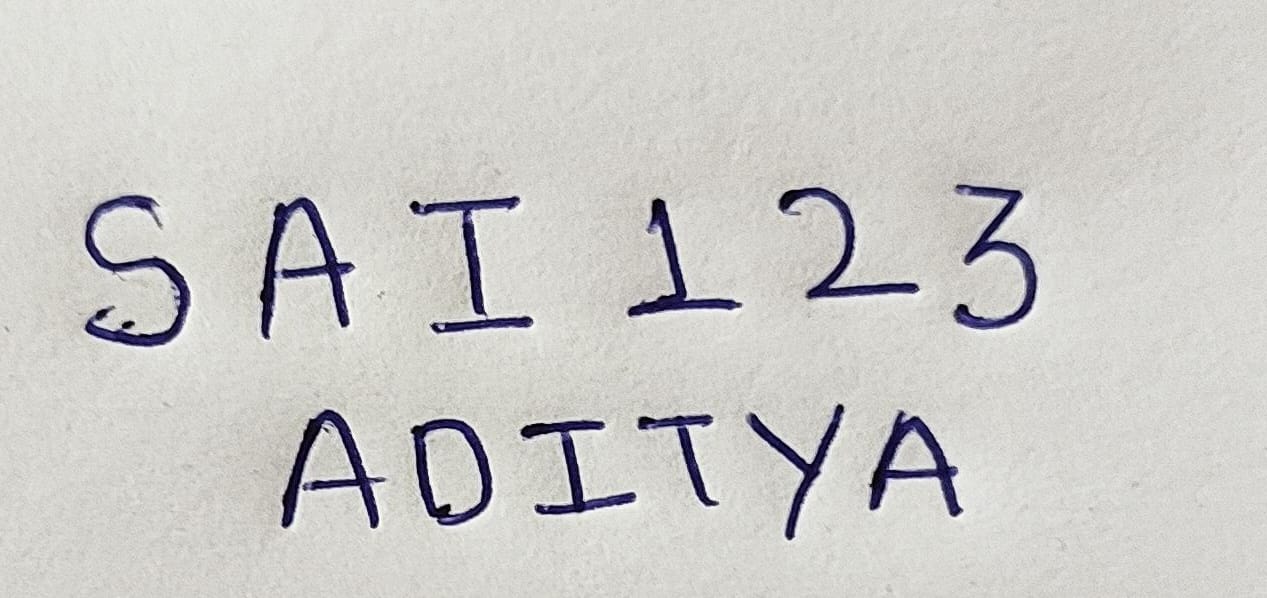 SAI 123
ADITYA